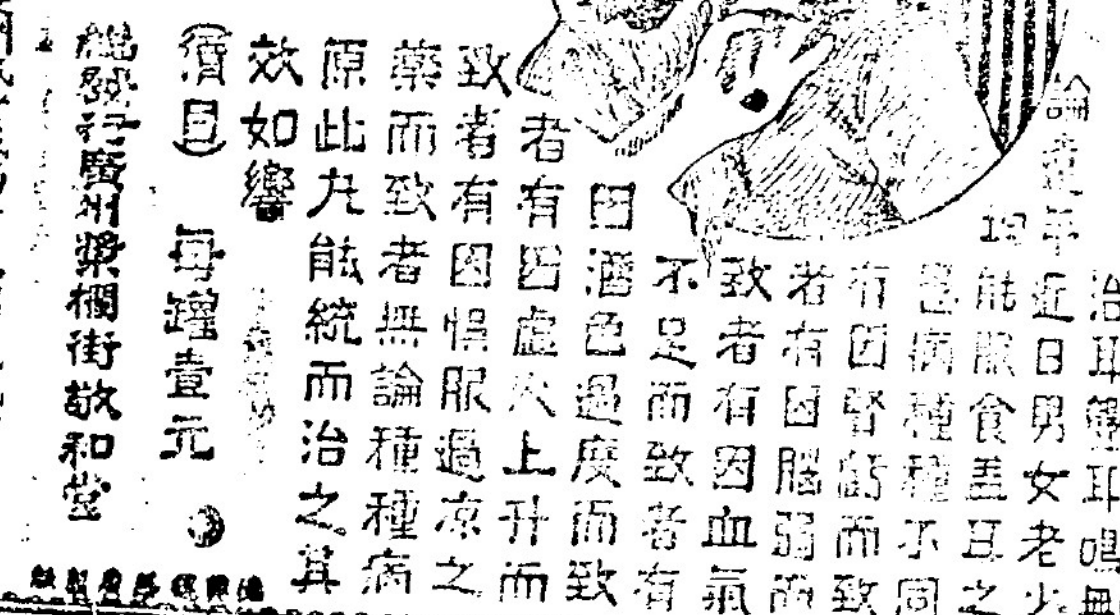 治耳聾耳鳴無
論遠年
近日男女老少
能服食盖耳之
患病種種不同
有因腎虧而致
者有因腦弱而
致者有因血氣
不足而致者有
因酒色過度而致
者有因虛火上升而
致者有因悞服過凉之
藥而致者無論種種病
原此丸能統而治之其
效如響
價目
每罇壹元
總發行廣州槳欄街敬和堂